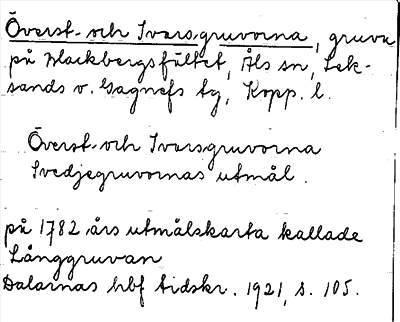 Överst- och Ivarsgruvorna, gruva
på Blackbergsfältet, Åls sn, Lek-
sands o. Gagnefs tg, Kopp. l.
Överst- och Ivarsgruvorna
Svedjegruvornas utmål.
på 1782 års utmålskarta kallade
Långgruvan
Dalarnas hbf tidskr. 1921, s. 105.